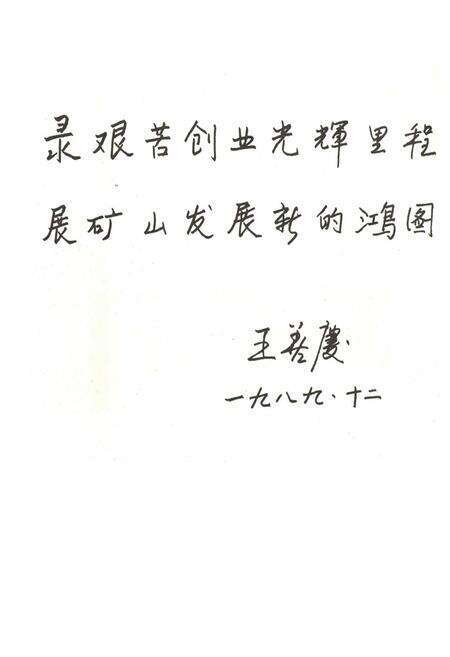 录艰苦创业光輝里程
展矿山发展新的鸿图
王善慶
一九八九·十二